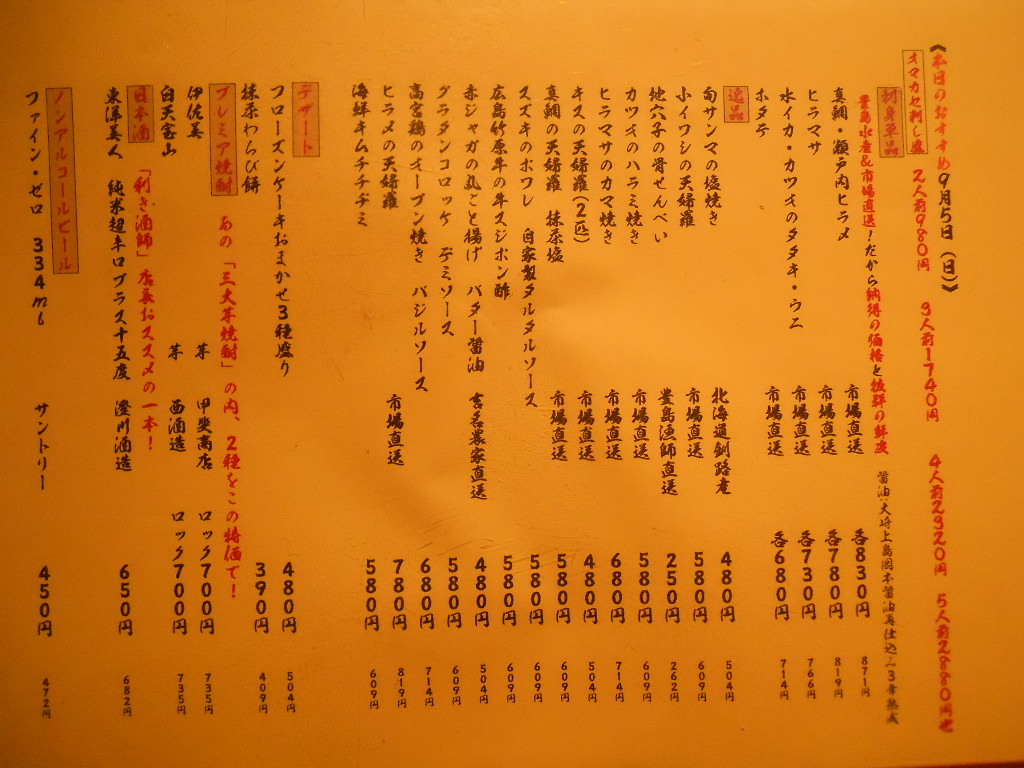 《本日のおすすめ9月5日(日)》
オマカセ刺し盛 2人前980円 3人前1740円 4人前2320円 5人前2880円也
刺身単品 豊島水産&市場直送!だから納得の価格と抜群の鮮度 醤油:大崎上島岡本醤油再仕込み3年熟成
真鯛・瀬戸内ヒラメ 市場直送 各830円 871円
ヒラマサ 市場直送 各780円 819円
水イカ・カツオのタタキ・ウニ 市場直送 各730円 766円
ホタテ 市場直送 各680円 714円
逸品
旬サンマの塩焼き 北海道釧路産 480円 504円
小イワシの天婦羅 市場直送 580円 609円
地穴子の骨せんべい 豊島漁師直送 250円 262円
カツオのハラミ焼き 市場直送 580円 609円
ヒラマサのカマ焼き 市場直送 680円 714円
キスの天婦羅(2匹) 市場直送 480円 504円
真鯛の天婦羅 抹茶塩 市場直送 580円 609円
スズキのポワレ 自家製タルタルソース 580円 609円
広島竹原牛の牛スジポン酢 580円 609円
赤ジャガの丸ごと揚げ バター醤油 吉名農家直送 480円 504円
グラタンコロッケ デミソース 580円 609円
高宮鶏のオーブン焼き バジルソース 680円 714円
ヒラメの天婦羅 市場直送 780円 819円
海鮮キムチチヂミ 580円 609円
デザート
フローズンケーキおまかせ3種盛り 480円 504円
抹茶わらび餅 390円 409円
プレミア焼酎 あの「三大芋焼酎」の内、2種をこの特価で!
伊佐美 芋 甲斐商店 ロック700円 735円
白天宝山 芋 西酒造 ロック700円 735円
日本酒 「利き酒師」店長おススメの一本!
東洋美人 純米超辛口プラス十五度 澄川酒造 650円 682円
ノンアルコールビール
ファイン・ゼロ 334ml サントリー 450円 472円